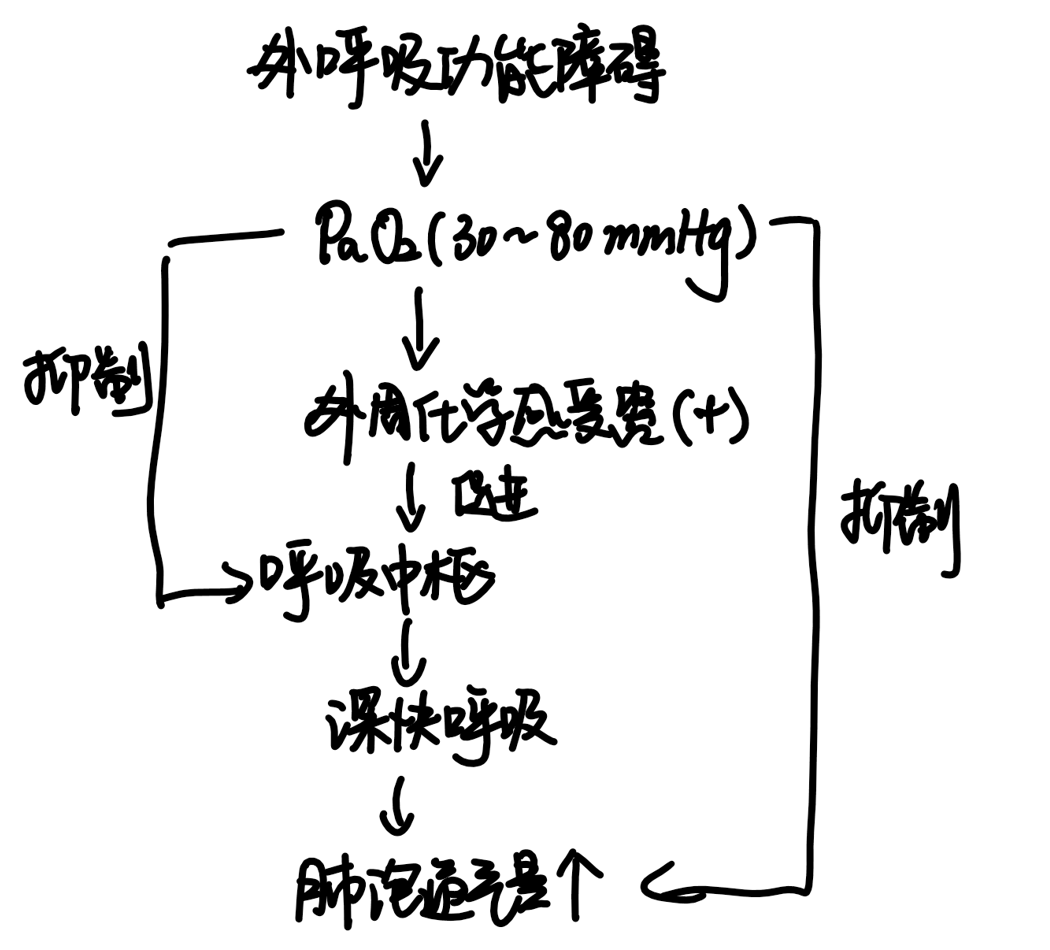 外呼吸功能障碍
↓
PaO₂(30~80mmHg)
↓
抑制
外周化学感受器(+)
↓ 促进
抑制
呼吸中枢
↓
深快呼吸
↓
肺泡通气量↑